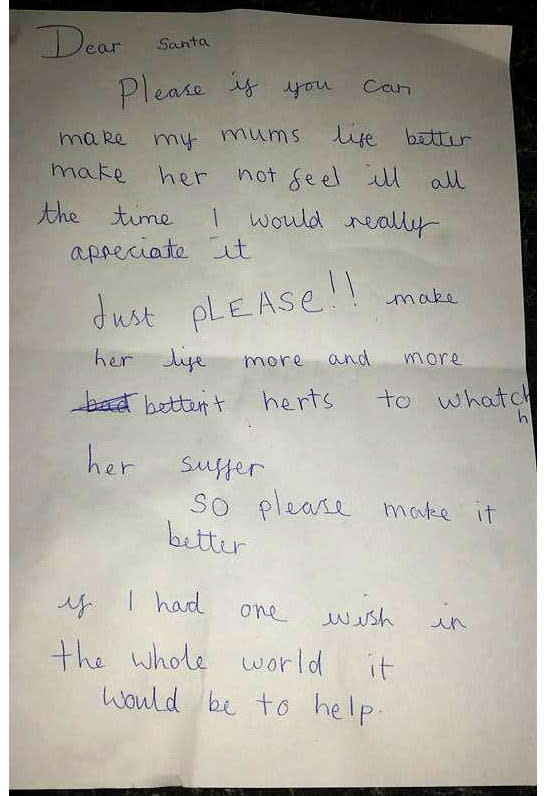 Dear Santa
Please if you can
make my mums life better
make her not feel ill all
the time I would really
apreciate it
Just pLEASE!! make
her life more and more
bad betterit herts to whatch
h
her suffer
SO please make it
better
if I had one wish in
the whole world it
would be to help.